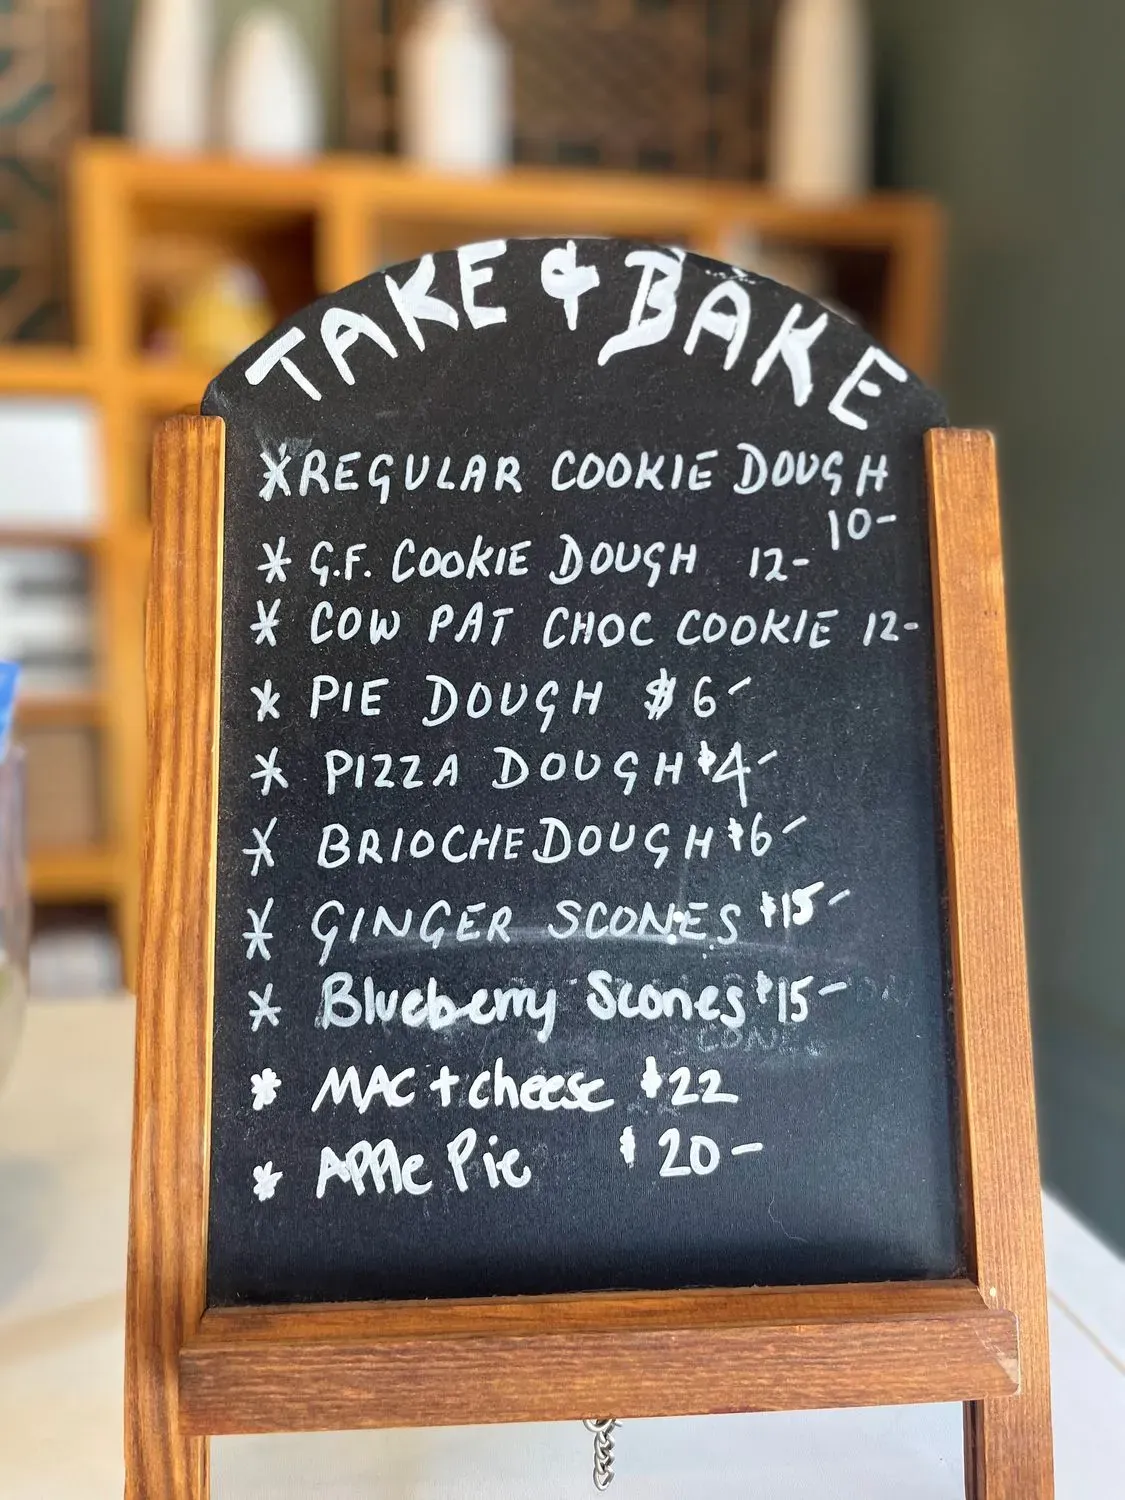 TAKE & BAKE
* REGULAR COOKIE DOUGH
10-
* G.F. COOKIE DOUGH 12-
* COW PAT CHOC COOKIE 12-
* PIE DOUGH $6-
* PIZZA DOUGH $4-
* BRIOCHE DOUGH $6-
* GINGER SCONES $15-
* Blueberry Scones $15-
* MAC + cheese $22
* APPle Pie $20-